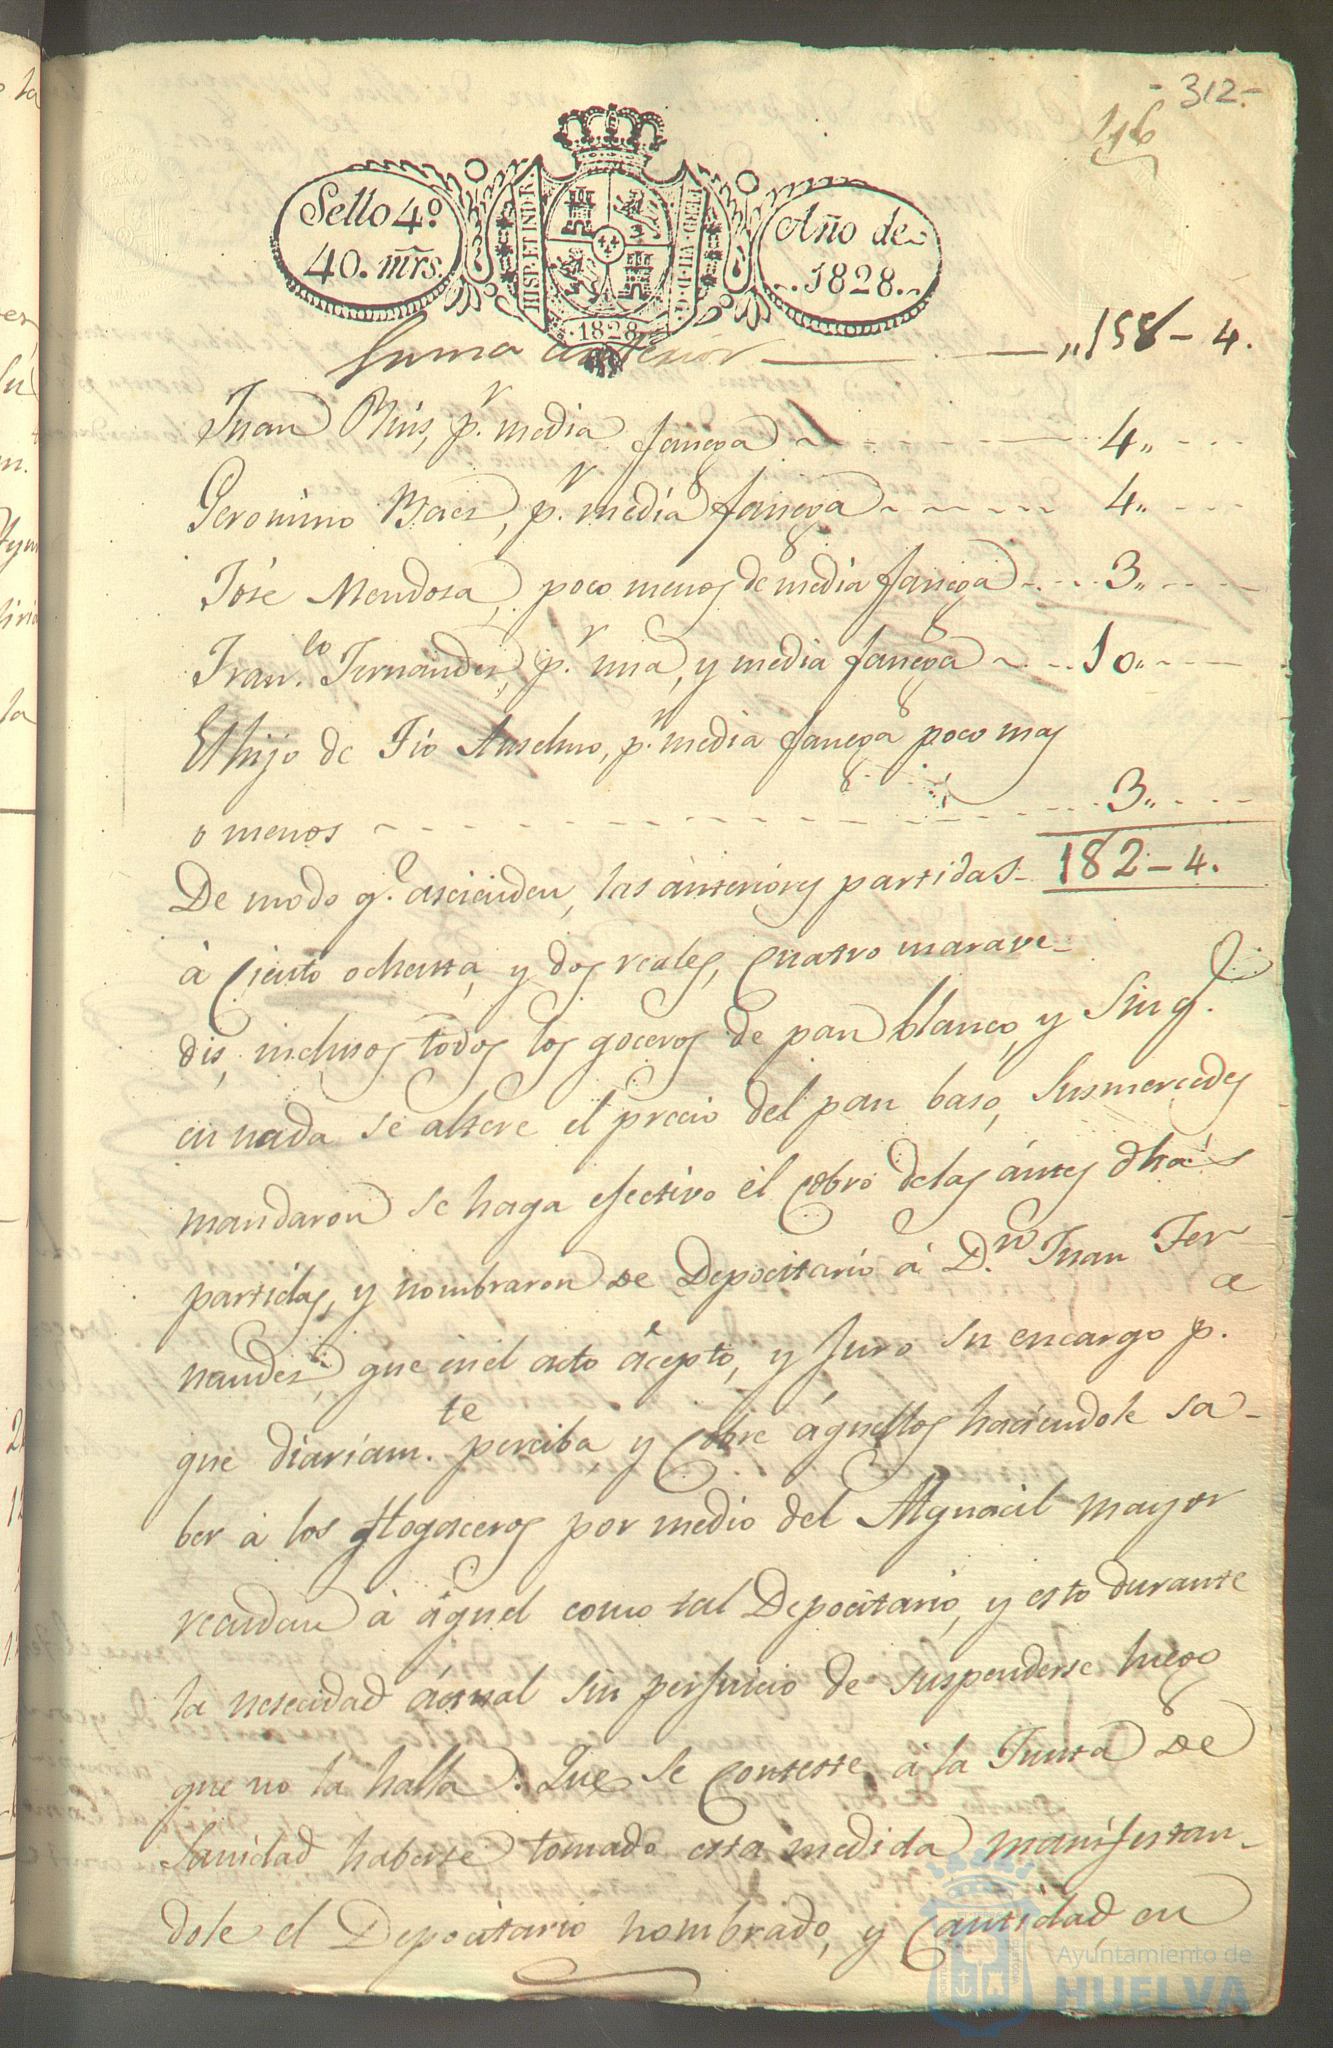 -312.-
116
Sello 4.º
40. mrs.
HISP. ET IND. R.
FERD. VII. D. G.
1828
Año de
1828.
Suma anterior „158-4.
Juan Rius, p.r media fanega 4„
Geronimo Baes, p.r media fanega 4„
José Mendosa, poco menos de media fanega 3„
Fran.co Fernandes, p.r una, y media fanega 10„
El hijo de Tio Anselmo, p.r media fanega poco mas
o menos 3„
De modo q.e asciende, las anteriores partidas 182-4.
à Ciento ochenta, y dos reales, Cuatro marave-
dis, inclusos todos los goceros de pan blanco, y Sin q.e
en nada se altere el precio del pan baso, Susmercedes
mandaron se haga efectivo el Cobro delas ántes dhas
partidas, y nombraron de Depocitario á D.n Juan Fer
nandes, que en el acto àcepto, y Juro su encargo p.a
que diariam.te perciba, y Cobre àquellos haciendole sa-
ber à los Hogaceros por medio del Alguacil mayor
recauden à àquel como tal Depocitario, y esto durante
la nesecidad áctual sin perjuicio de suspenderse luego
que no la halla. Que se Conteste à la Junta de
Sanidad haberse tomado esta medida manifestan-
dole el Depocitario nombrado, y Cantidad en
Ayuntamiento de
HUELVA